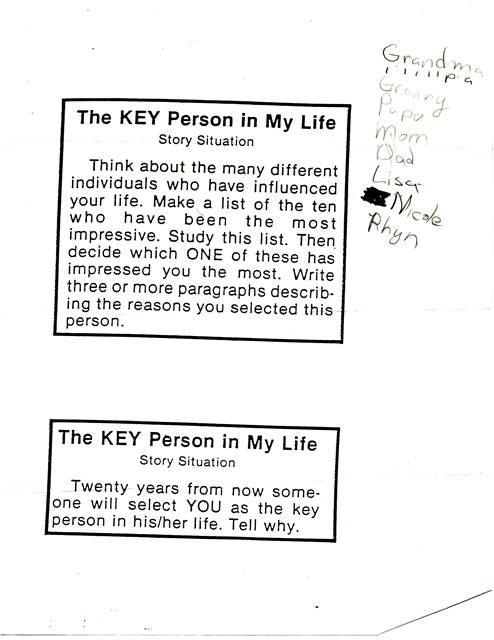 The KEY Person in My Life
Story Situation
Think about the many different
individuals who have influenced
your life. Make a list of the ten
who have been the most
impressive. Study this list. Then
decide which ONE of these has
impressed you the most. Write
three or more paragraphs describ-
ing the reasons you selected this
person.
Grandma
Granny
Papa
Mom
Dad
Lisa
Nicole
Rhyn
The KEY Person in My Life
Story Situation
Twenty years from now some-
one will select YOU as the key
person in his/her life. Tell why.